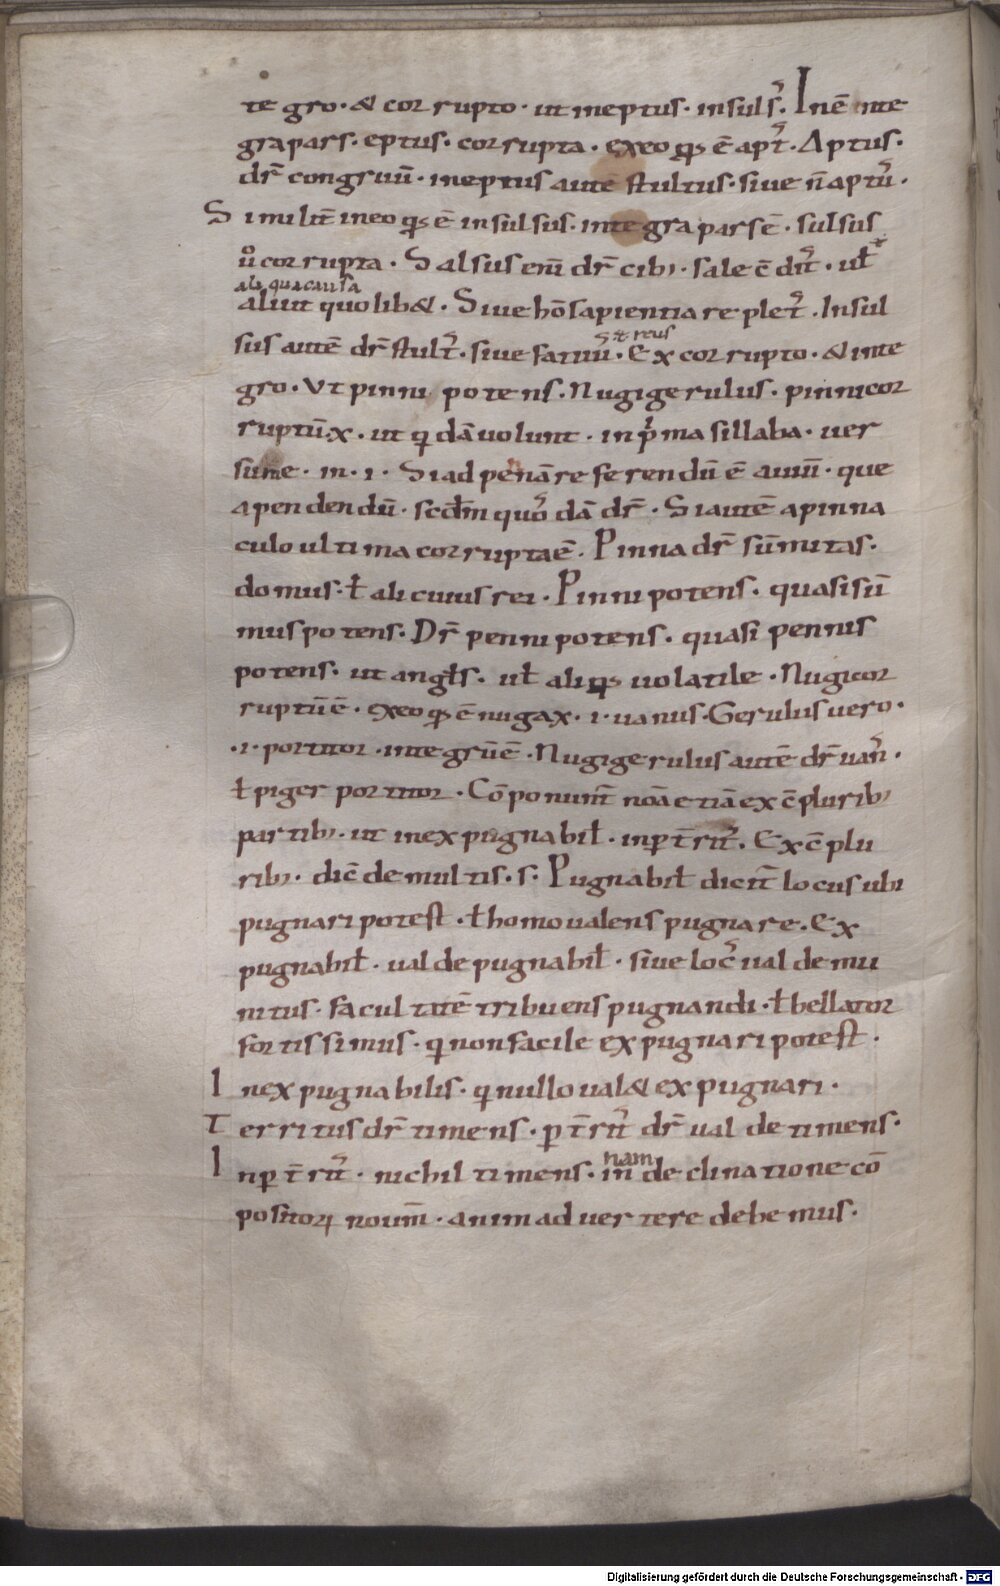 te gro · & corrupto · ut ineptus · insulsꝰ. In ē inte
gra pars · eptus · corrupta · ex eo qđ ē aptꝰ. Aptus ·
dr̄ congruū · ineptus autē stultus · sive n̄ aptꝰ ·
Similit̄ in eo qđ ē insulsus · integra pars ē · sulsus
u̇ corrupta · Salsus eni dr̄ cibꝰ · sale c̄ditꝰ · ul̄
aliqua causa
aliut quolib& · Sive hō sapientia repletꝰ. Insul
sus autē dr̄ stultꝰ · sive fatuus · Ex corrupto · & inte
gro · Ut pinnipotens · Nugigerulus · pinni cor
ruptū ÷ · ut qdā volunt · in pͥma sillaba · ver
sum ē · in · i · Si ad pennā referendū ē aviū · que
a pendendū · scdm quosdā dr̄ · Si autē a pinna
culo ultima corrupta ē · Pinna dr̄ sūmitas ·
domus · ł alicuius rei · Pinnipotens · quasi sū
mus potens · Dr̄ pennipotens · quasi pennis
potens · ut angl̄s · ul̄ aliqđ volatile · Nugi cor
ruptū ē · ex eo qđ ē nugax · i · vanus · Gerulus vero ·
· i · portitor · integrū ē · Nugigerulus autē dr̄ vanꝰ ·
ł piger portitor · Cōponunt̄ noā etiā ex c̄pluribꝰ
partibꝰ · ut inexpugnabil̄ · inpt̄ritꝰ. Ex c̄plu
ribꝰ · dic̄ de multis · s · Pugnabil̄ dicit̄ locus ubi
pugnari potest · ł homo valens pugnare · Ex
pugnabil̄ · valde pugnabil̄ · sive locꝰ valde mu
nitus · facultatē tribuens pugnandi · ł bellator
fortissimus · q non facile expugnari potest ·
Inexpugnabilis · q nullo val& expugnari ·
Territus dr̄ timens · pt̄ritꝰ dr̄ valde timens ·
nam
Inpt̄ritꝰ · nichil timens · in declinatione cō
positoꝝ nouīn · animadvertere debemus ·
Digitalisierung gefördert durch die Deutsche Forschungsgemeinschaft - DFG